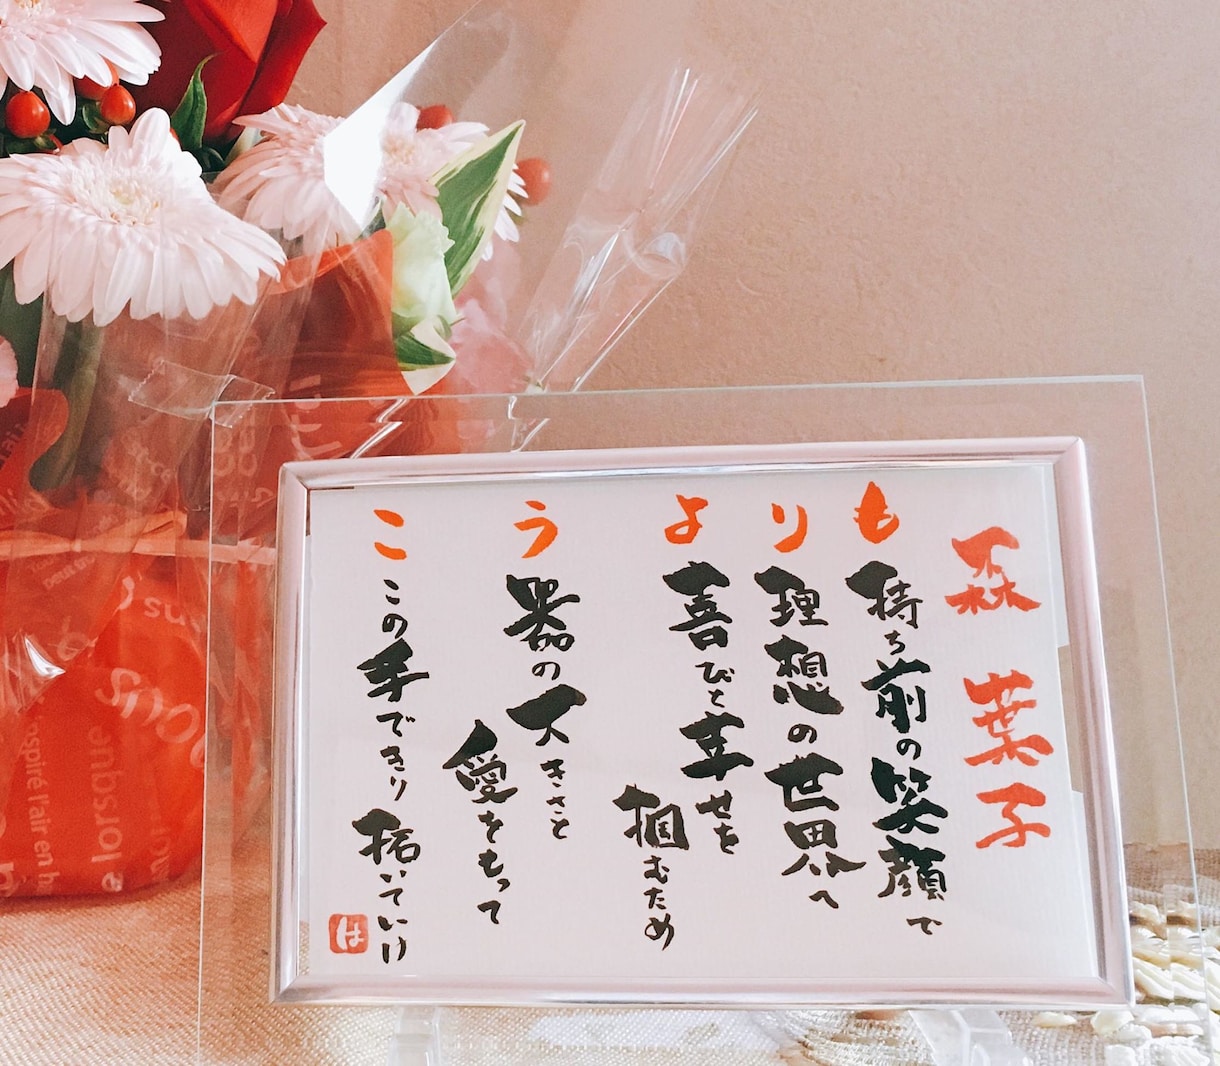 森 葉子
も
持ち前の笑顔で
り
理想の世界へ
よ
喜びと幸せを
掴むため
う
器の大きさと
愛をもって
こ
この手できり
拓いていけ
は